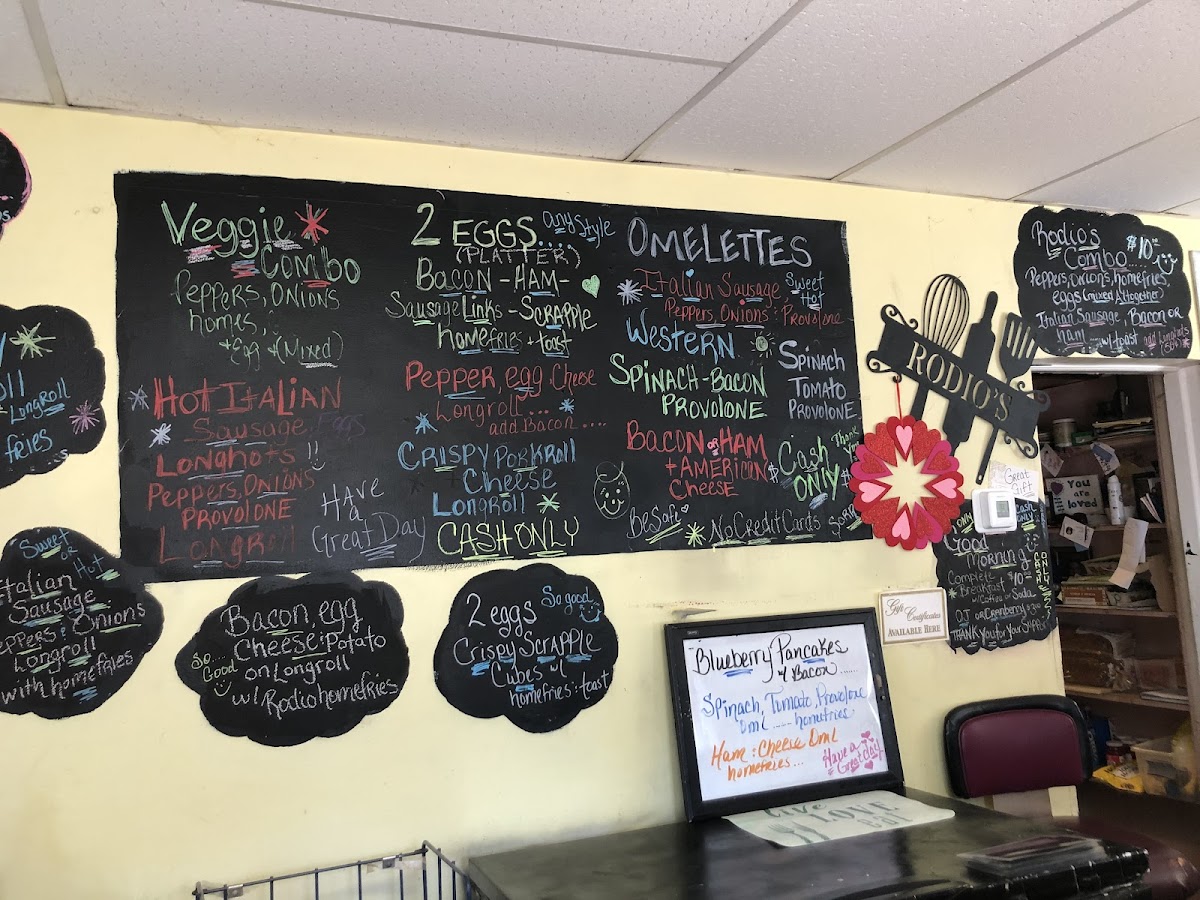 Veggie
Combo
Peppers, Onions
homes,
+ Egg + (Mixed)
Hot Italian
Sausage, Eggs
Longhots !!
Peppers, Onions
Provolone
Longroll
Have
a
Great Day
2 Eggs... any Style
(Platter)
Bacon - Ham -
Sausage Links - Scrapple
homefries + toast
Pepper, egg, Cheese
Longroll ...
add Bacon ....
Crispy Porkroll
Cheese
Longroll
CASH ONLY
Omelettes
Italian Sausage, Sweet
Hot
Peppers, Onions : Provolone
Western
Spinach - Bacon
Provolone
Spinach
Tomato
Provolone
Bacon or Ham
+ American
Cheese
Thank
$ Cash $
ONLY!
Be Safe
No Credit Cards
Sorry
Longroll
fries
Sweet
or
Hot
Italian
Sausage
Peppers : Onions
Longroll
with homefries
Bacon, egg
Cheese : Potato
on Longroll
w/ Rodio homefries
So....
Good
2 eggs So good
Crispy Scrapple
Cubes w/
homefries : toast
Blueberry Pancakes
w/ Bacon .......
Spinach, Tomato, Provolone
Oml ..... homefries
Ham : Cheese Oml
homefries ...
Have a
Great day!
LIVE
LOVE
eat
Gift Certificates
AVAILABLE HERE
RODIO'S
Rodio's $10
Combo.....
Peppers, onions, homefries,
eggs (mixed Altogether)
Italian Sausage, Bacon or
ham ... w/ toast
Great
Gift
Good
Morning
Complete
Breakfast $10
w/ Coffee or Soda
OJ or Cranberry
THANK You for Your Support
You are
loved